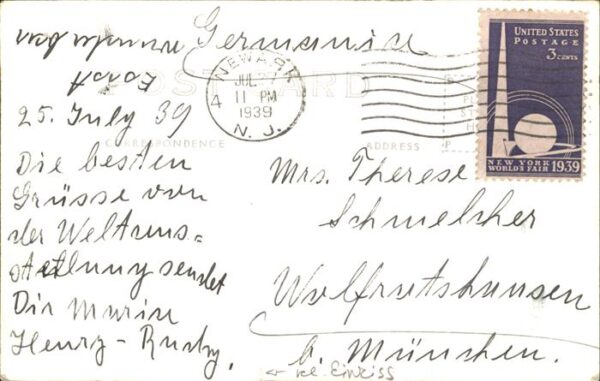 Germania
25. July 39
Die besten
Grüsse von
der Weltaus=
stellung sendet
Dir
Henry -
POST CARD
CORRESPONDENCE
ADDRESS
NEWARK
4
JUL 27
11 PM
1939
N. J.
UNITED STATES
POSTAGE
3 CENTS
NEW YORK
WORLD'S FAIR 1939
Mrs. Therese
Schmelcher
Wolfratshausen
b. München.
kl. Einriss